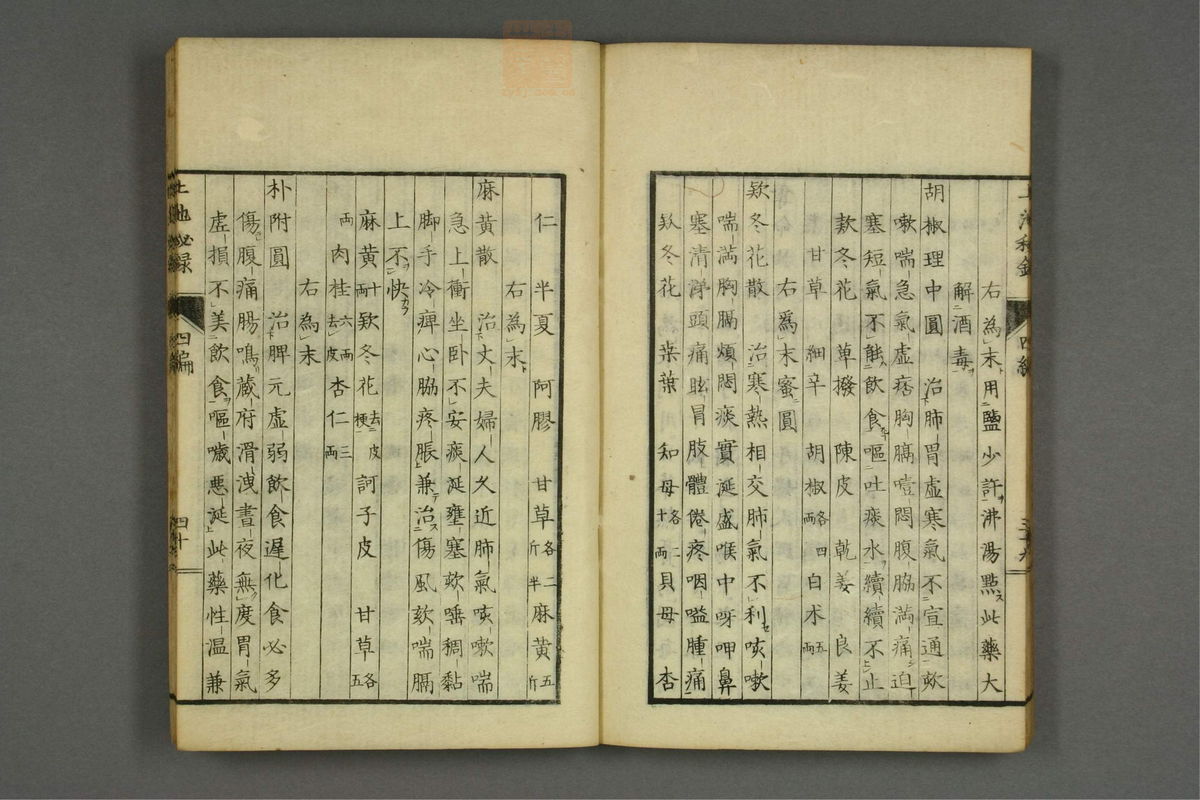 右為末用鹽少許沸湯點此藥大
解酒毒
胡椒理中圓　治肺胃虛寒氣不宣通欬
嗽喘急氣虛痞胸膈噎悶腹脇滿痛迫
塞短氣不能飲食嘔吐痰水續續不止
款冬花　蓽撥　陳皮　乾姜　良姜
甘草　細辛　胡椒各四兩　白朮五兩
右爲末蜜圓
欵冬花散　治寒熱相交肺氣不利咳嗽
喘滿胸膈煩悶痰實涎盛喉中呀呷鼻
塞清涕頭痛眩冒肢體倦疼咽嗌腫痛
欵冬花　桒葉　知母各十二兩　貝母　杏
仁　半夏　阿膠　甘草各二斤半　麻黄五斤
右為末
麻黄散　治丈夫婦人久近肺氣咳嗽喘
急上衝坐卧不安痰涎壅塞欬唾稠黏
脚手冷痺心脇疼脹兼治傷風欬喘膈
上不快
麻黄十兩　欵冬花去皮梗　訶子皮　甘草各五
兩　肉桂六兩去皮　杏仁三兩
右為末
朴附圓　治脾元虛弱飲食遲化食必多
傷腹痛腸鳴蔵府滑洩晝夜無度胃氣
虛損不美飲食嘔噦惡涎此藥性溫兼
四編
四十